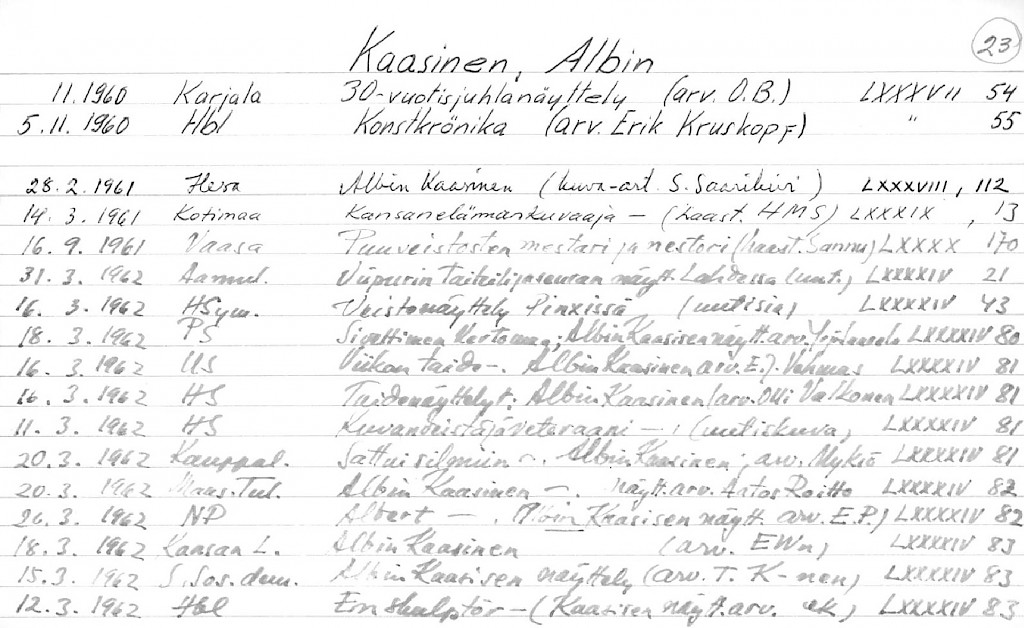 23
Kaasinen, Albin
11.1960 Karjala 30-vuotisjuhlanäyttely (arv. O.B.) LXXXVII 54
5.11.1960 Hbl Konstkrönika (arv. Erik Kruskopf) " 55
28.2.1961 Hesa Albin Kaasinen (kuva-art. S. Saarikivi) LXXXVIII, 112
14.3.1961 Kotimaa Kansanelämänkuvaaja – (haast. HMS) LXXXIX, 13
16.9.1961 Vaasa Puuveistosten mestari ja nestori (haast. Sannu) LXXXX 170
31.3.1962 Aamul. Viipurin taiteilijaseuran näytt. Lahdessa (uut.) LXXXXIV 21
16.3.1962 HSym. Veistonäyttely Pinxissä (uutisia) LXXXXIV 43
18.3.1962 PS Albin Kaasisen näytt. arv. LXXXXIV 80
16.3.1962 US Viikon taide –. Albin Kaasinen arv. E.J. Vehmas LXXXXIV 81
16.3.1962 HS Taidenäyttelyt: Albin Kaasinen (arv. Olli Valkonen LXXXXIV 81
11.3.1962 HS Kuvanveistäjäveteraani – (uutiskuva) LXXXXIV 81
20.3.1962 Kauppal. Sattui silmiin –. Albin Kaasinen; arv. LXXXXIV 81
20.3.1962 Maas.Tul. Albin Kaasinen –. näytt. arv. Artos Roitto LXXXXIV 82
26.3.1962 NP – . Albin Kaasisen näytt. arv. E.P.) LXXXXIV 82
18.3.1962 Kansan L. Albin Kaasinen (arv. EWn) LXXXXIV 83
15.3.1962 S. Sos.dem. Albin Kaasisen näyttely (arv. T. K-nen) LXXXXIV 83
12.3.1962 Hbl En skulptör – (Kaasisen näytt. arv. ek) LXXXXIV 83